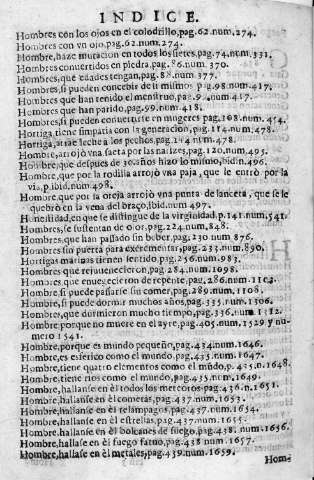 INDICE.
Hombres con los ojos en el colodrillo, pag. 62. num. 274.
Hombres con vn ojo, pag. 62. num. 274.
Hombre, haze mutacion en todos los sietes, pag. 74. num. 331.
Hombres conuertidos en piedra, pag. 86. num. 370.
Hombres, que edades tengan, pag. 88. num. 377.
Hombres, si pueden concebir de si mismos pag. 98. num. 417.
Hombres que han tenido el menstruo, pag. 99. num. 417.
Hombres que han parido, pag. 99. num. 418.
Hombres, si pueden conuertirse en mugeres pag. 108. num. 454.
Hortiga, tiene simpatia con la generacion, pag. 114. num. 478.
Hortiga, atrae leche a los pechos, pag. 114. num. 478.
Hombre, arrojò vna saeta por las narizes, pag. 120. num. 495.
Hombre que despues de 30. años hizo lo mismo, ibidn. 496.
Hombre, que por la rodilla arrojò vna paja, que le entrò por la
via. p. ibid. num. 498.
Hombre que por la oreja arrojò vna punta de lanceta, que se le
quebrò en la vena del braço, ibid. num. 497.
Honestidad, en que se distingue de la virginidad. p. 141. num. 541.
Hombres, se sustentan de olor, pag. 224. num. 848.
Hombres, que han passado sin beber, pag. 230 num 876.
Hombres sin puerta para exrementar, pag. 233. num. 890.
Hortigas marinas tienen sentido, pag. 256. num. 983.
Hombres que rejuuenecieron, pag. 284. num. 1098.
Hombres que enuegecieron de repente, pag. 286. num. 1103.
Hombre, si puede passarse sin comer, pag. 289. num. 1108.
Hombre, si puede dormir muchos años, pag. 335. num. 1306.
Hombres, que dormieron mucho tiempo, pag. 336. num. 1312.
Hombre porque no muere en el ayre, pag. 405. num. 1529 y nu-
mero 1541.
Hombre, porque es mundo pequeño, pag. 434. num. 1646.
Hombre, es esferico como el mundo, pag. 435. num. 1647.
Hombre, tiene quatro elementos como el mũdo, p. 435. n. 1648.
Hombre, tiene rios como el mundo, pag. 435. num. 1649.
Hombre, hallanse en èl todos los meteoros pag. 436. n. 1651.
Hombre, hallanse en èl cometas, pag. 437. num. 1653.
Hombre, hallanse en èl relampagos, pag. 437. num. 1654.
Hombre, hallanse en èl estrellas, pag. 437. num. 1655.
Hombre, hallanse en èl bolcanes de fuego, pag. 438. num. 1656.
Hombre, hallase en èl fuego fatuo, pag. 438 num. 1657.
Hombre, hallanse en èl metales, pag. 439. num. 1659.
Hom-